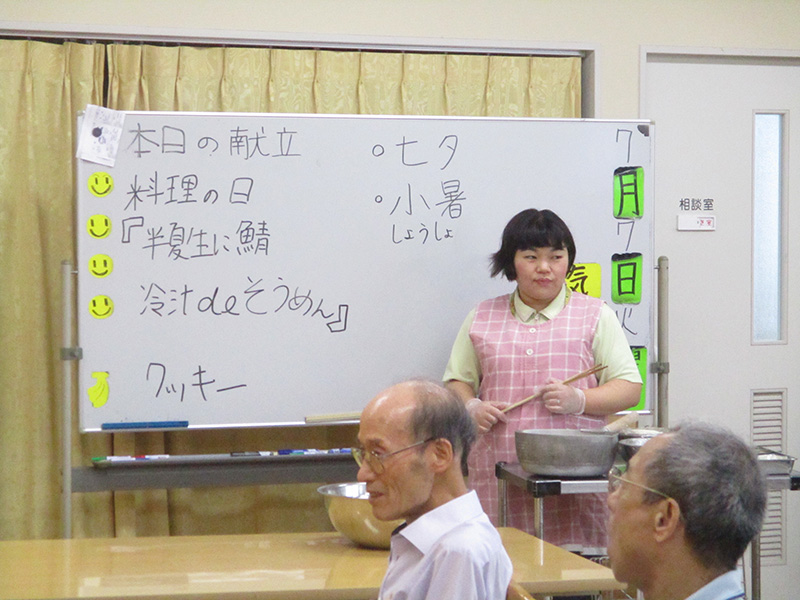 本日の献立
料理の日
『半夏生に鯖
冷汁deそうめん』
クッキー
○七夕
○小暑
しょうしょ
7
月
7
日
火
気
相談室